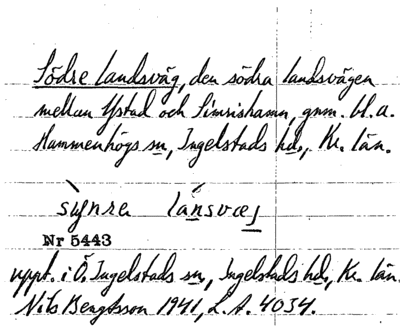 Södre landsväg, den södra landsvägen
mellan Ystad och Simrishamn, gnm. bl.a.
Hammenhögs sn, Ingelstads hd., Kr. län.
synra lansvæj
Nr 5443
uppt. i Ö. Ingelstads sn, Ingelstads hd, Kr. län
Nils Bengtsson 1941, L.A. 4034.